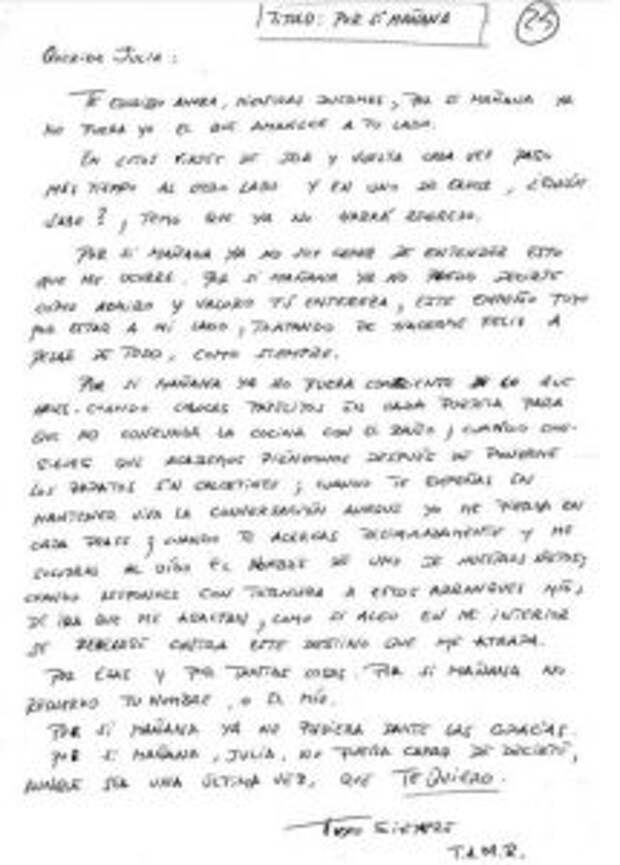 TITULO: POR SI MAÑANA
25
QUERIDA JULIA:
TE ESCRIBO AHORA, MIENTRAS DUERMES, POR SI MAÑANA YA
NO FUERA YO EL QUE AMANECE A TU LADO.
EN ESTOS VIAJES DE IDA Y VUELTA CADA VEZ PASO
MÁS TIEMPO AL OTRO LADO Y EN UNO DE ELLOS, ¿QUIÉN
SABE?, TEMO QUE YA NO HABRÁ REGRESO.
POR SI MAÑANA YA NO SOY CAPAZ DE ENTENDER ESTO
QUE ME OCURRE. POR SI MAÑANA YA NO PUEDO DECIRTE
CÓMO ADMIRO Y VALORO TU ENTEREZA, ESTE EMPEÑO TUYO
POR ESTAR A MI LADO, TRATANDO DE HACERME FELIZ A
PESAR DE TODO, COMO SIEMPRE.
POR SI MAÑANA YA NO FUERA CONSCIENTE DE LO QUE
HACES. CUANDO COLOCAS PAPELITOS EN CADA PUERTA PARA
QUE NO CONFUNDA LA COCINA CON EL BAÑO; CUANDO CON-
SIGUES QUE ACABEMOS RIÉNDONOS DESPUÉS DE PONERME
LOS ZAPATOS SIN CALCETINES; CUANDO TE EMPEÑAS EN
MANTENER VIVA LA CONVERSACIÓN AUNQUE YO ME PIERDA EN
CADA FRASE; CUANDO TE ACERCAS DISIMULADAMENTE Y ME
SUSURRAS AL OÍDO EL NOMBRE DE UNO DE NUESTROS NIETOS;
CUANDO RESPONDES CON TERNURA A ESTOS ARRANQUES MÍOS
DE IRA QUE ME ASALTAN, COMO SI ALGO EN MI INTERIOR
SE REBELASE CONTRA ESTE DESTINO QUE ME ATRAPA.
POR ESAS Y POR TANTAS COSAS. POR SI MAÑANA NO
RECUERDO TU NOMBRE, O EL MÍO.
POR SI MAÑANA YA NO PUDIERA DARTE LAS GRACIAS.
POR SI MAÑANA, JULIA, NO FUERA CAPAZ DE DECIRTE,
AUNQUE SEA UNA ÚLTIMA VEZ, QUE TE QUIERO.
TUYO SIEMPRE
T.A.M.R.